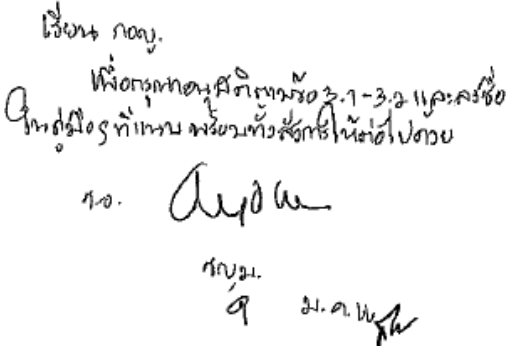 เรียน กอญ.
เพื่อกรุณาอนุมัติตามข้อ 3.1-3.2 และลงชื่อ
ในคู่มือฯ ที่แนบ พร้อมทั้งสั่งการให้ต่อไปด้วย
ชญม.
9 ม.ค.